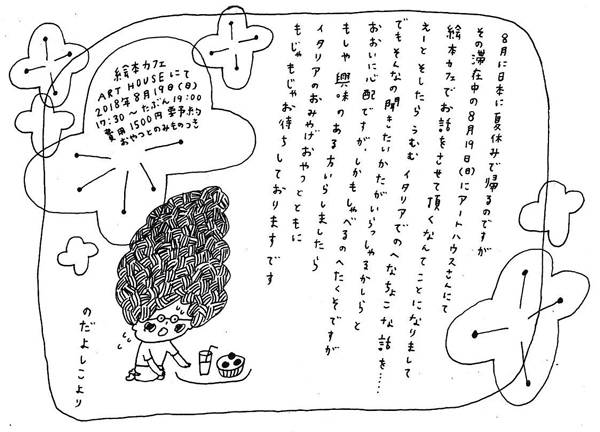 8月に日本に夏休みで帰るのですが
その滞在中の8月19日(日)にアートハウスさんにて
絵本カフェでお話をさせて頂くなんてことになりまして
えーとそしたらうむむイタリアでのへなちょこな話を……
でもそんなの聞きたいかたがいらっしゃるかしらと
おおいに心配ですが、しかもしゃべるのへたくそですが
もしや興味のある方いらしましたら
イタリアのおみやげおやつとともに
もじゃもじゃお待ちしておりますです
絵本カフェ
ART HOUSEにて
2018年8月19日(日)
17:30〜たぶん19:00
費用1500円要予約
おやつとのみものつき
のだよしこより